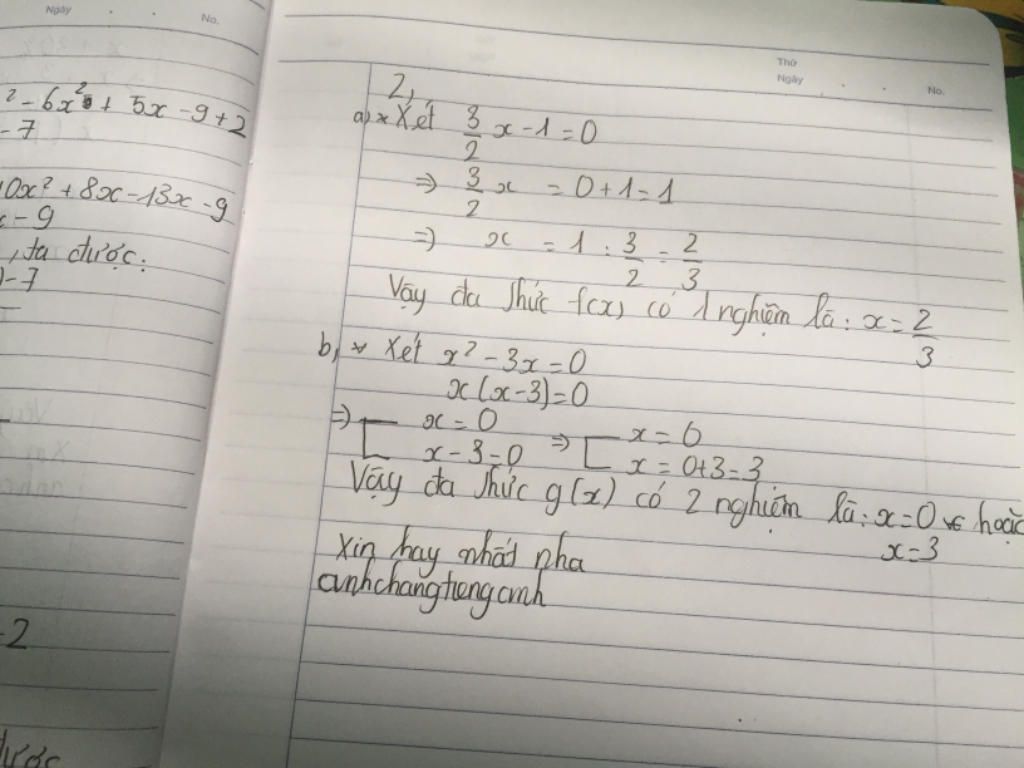 Ngày
No.
² - 6x² + 5x - 9 + 2
- 7
0x² + 8x - 13x - 9
- 9
, ta được:
) - 7
-2
được
Thứ
Ngày
No.
2,
a) * Xét 3/2 x - 1 = 0
=> 3/2 x = 0 + 1 = 1
=> x = 1 : 3/2 = 2/3
Vậy đa thức f(x) có 1 nghiệm là: x = 2/3
b, * Xét x² - 3x = 0
x(x - 3) = 0
=> [ x = 0 => [ x = 0
x - 3 = 0 x = 0 + 3 = 3
Vậy đa thức g(x) có 2 nghiệm là: x = 0 hoặc
x = 3
Xin hay nhất nha